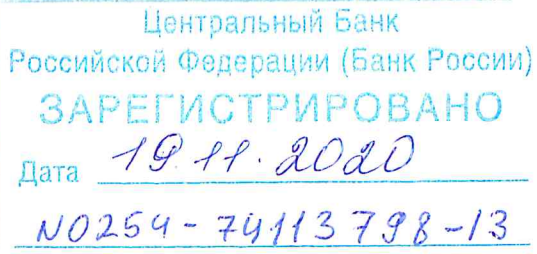 Центральный Банк
Российской Федерации (Банк России)
ЗАРЕГИСТРИРОВАНО
Дата 19.11.2020
N0254-74113798-13